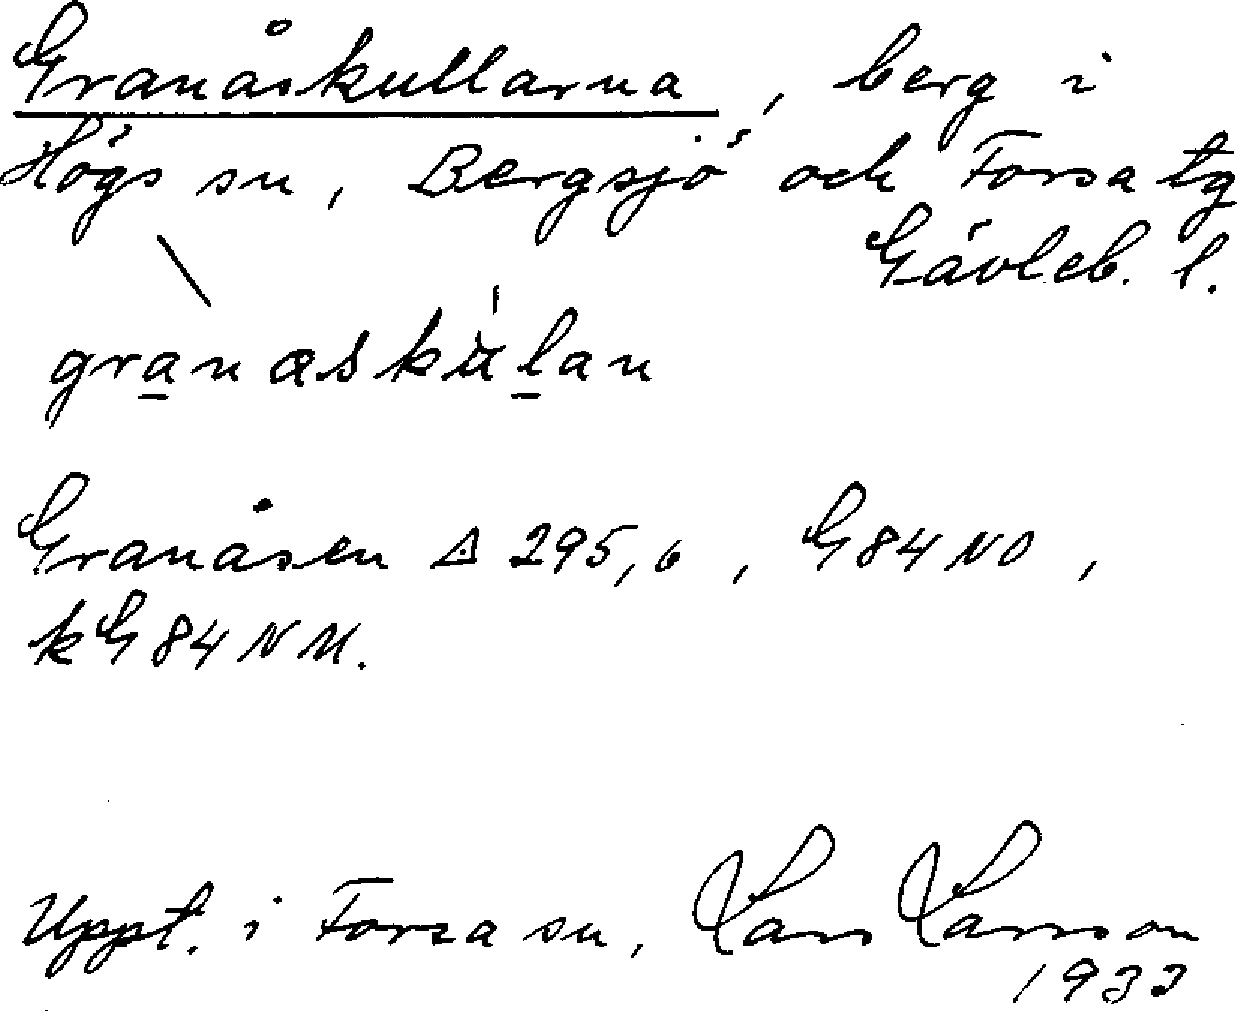 Granåskullarna, berg i
Högs sn, Bergsjö och Forsa tg
Gävleb. l.
granaskùlan
Granåsen △ 295,6, G84NO,
kG84NM.
Uppt. i Forsa sn, Lars Larsson
1933